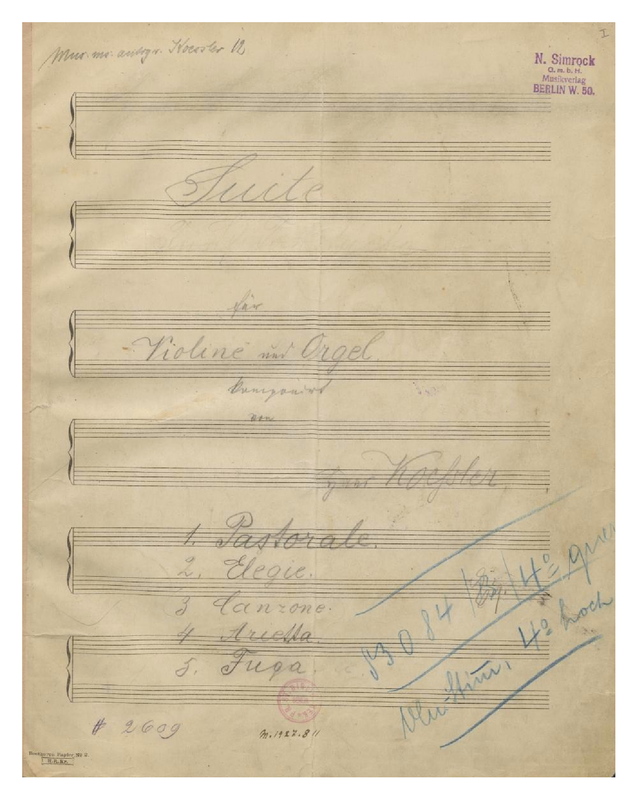 I
Mus. ms. autogr. Koessler 12
N. Simrock
G. m. b. H.
Musikverlag
BERLIN W. 50.
Suite
für
Violine und Orgel.
komponirt
von
Koessler
1. Pastorale.
2. Elegie.
3 Canzone.
4 Arietta.
5. Fuga.
53084
4º quer
4º hoch
# 2609
M. 1927.811